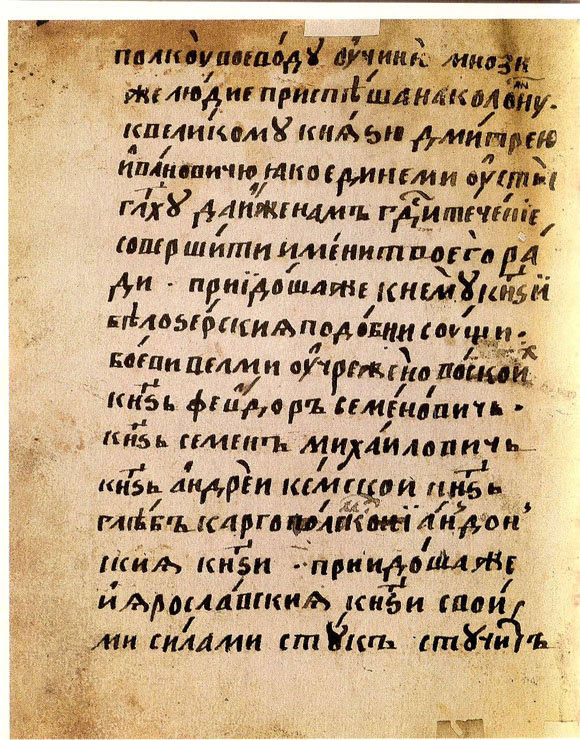 полкоу воеводꙋ оучинѣ мнози
же людие приспѣша на коломну.
к великомꙋ кнѧѕю дмитрею
ивановичю ꙗко единеми оусты
глхꙋ даи же намъ гди течение
совершити имени твоего ра
ди · приидоша же к немꙋ кнѕи
бѣлоѕерския подобни соущи ·
боеви велми оучрежено воской
кнѕь феѡдоръ семеновичь ·
кнѕь семенъ михаиловичь
кнѕь андрѣи кемской кнѕь
глѣбъ каргополской андом
скиѧ кнѕи · приидоша же
и ꙗрославския кнѕи свои
ми силами стꙋкъ стꙋчитъ